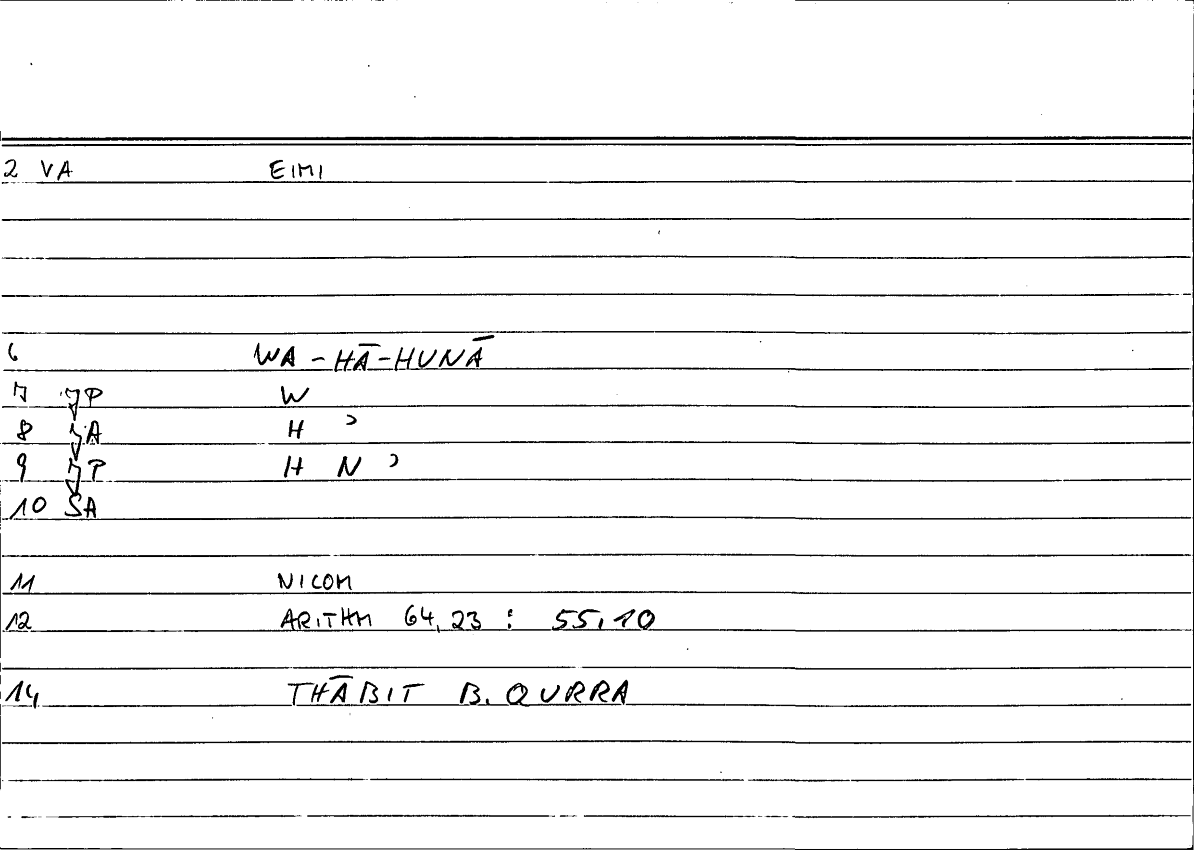 2 VA EIMI
6 WA-HĀ-HUNĀ
7 JP W
8 JA H ʾ
9 JP H N ʾ
10 SA
11 NICOM
12 ARITHM 64,23 : 55,10
14 THĀBIT B. QURRA